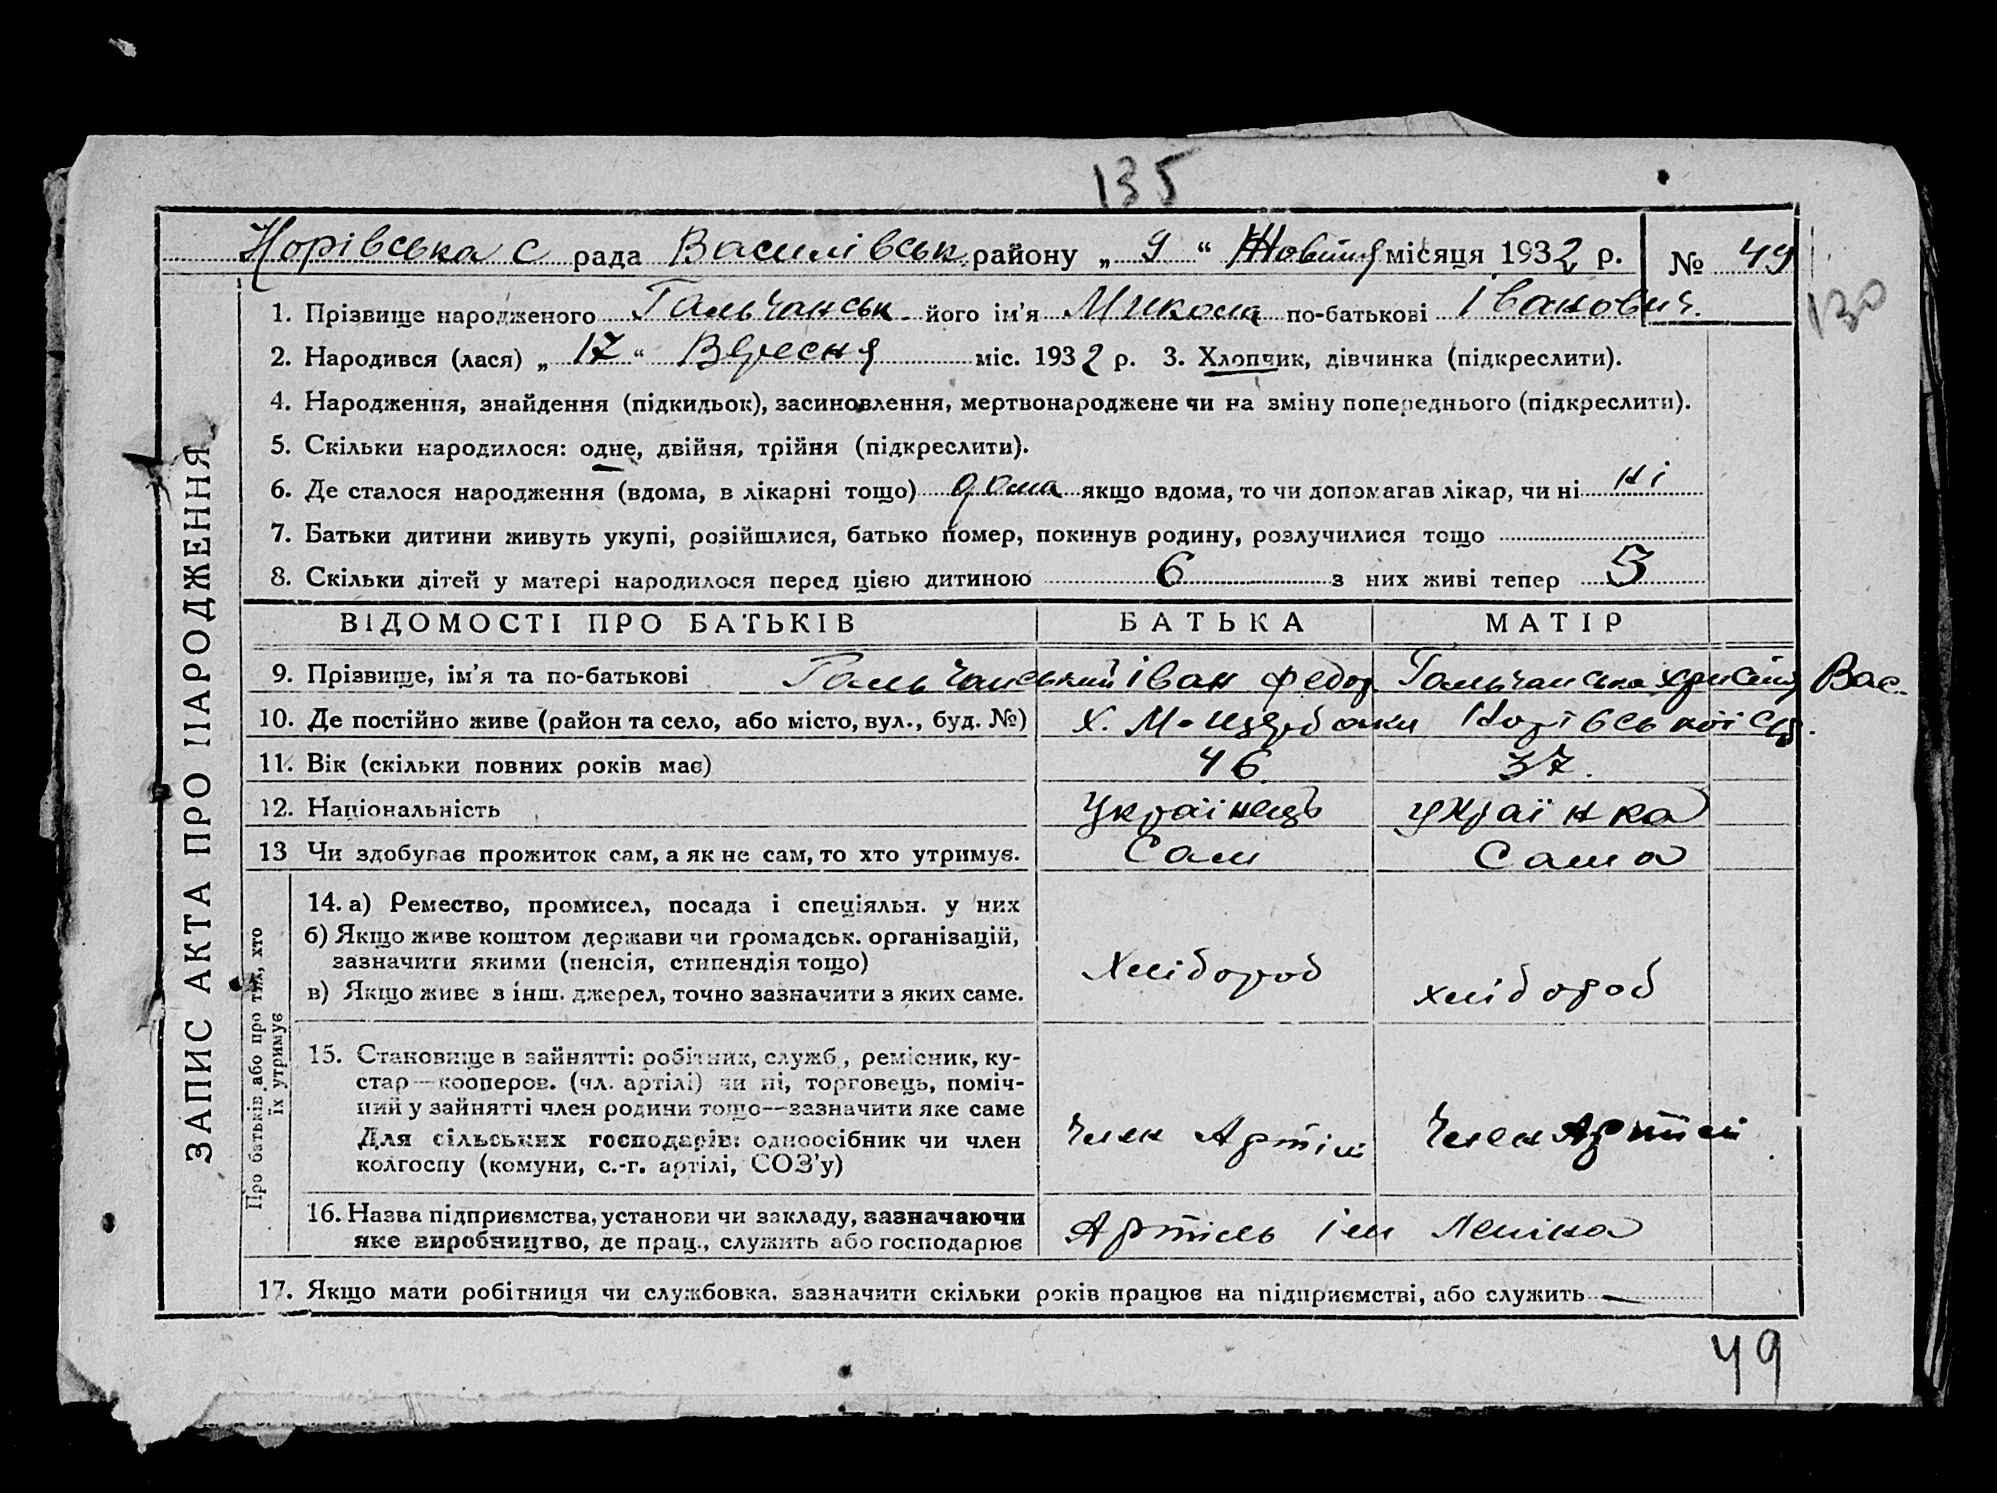 135
Норівська с рада Василівськ. району „ 9 “ Жовтня місяця 1932 р. № 49
130
1. Прізвище народженого Гальчанськ. його ім'я Микола по-батькові Іванович.
2. Народився (лася) „ 17 “ Вересня міс. 1932 р. 3. Хлопчик, дівчинка (підкреслити).
4. Народження, знайдення (підкидьок), засиновлення, мертвонароджене чи на зміну попереднього (підкреслити).
5. Скільки народилося: одне, двійня, трійня (підкреслити).
6. Де сталося народження (вдома, в лікарні тощо) дома якщо вдома, то чи допомагав лікар, чи ні ні
7. Батьки дитини живуть укупі, розійшлися, батько помер, покинув родину, розлучилися тощо
8. Скільки дітей у матері народилося перед цією дитиною 6 з них живі тепер 5
ЗАПИС АКТА ПРО НАРОДЖЕННЯ
ВІДОМОСТІ ПРО БАТЬКІВ БАТЬКА МАТІР
9. Прізвище, ім'я та по-батькові Гальчанський Іван Федор. Гальчанська Христина Вас.
10. Де постійно живе (район та село, або місто, вул., буд. №) Х. М- Норівської
11. Вік (скільки повних років має) 46 37.
12. Національність Українець українка
13 Чи здобуває прожиток сам, а як не сам, то хто утримує. Сам Сама
Про батьків або про тих, хто
їх утримує
14. а) Ремество, промисел, посада і спеціяльн. у них
б) Якщо живе коштом держави чи громадськ. організацій,
зазначити якими (пенсія, стипендія тощо)
в) Якщо живе з інш. джерел, точно зазначити з яких саме.
Хлібороб хлібороб
15. Становище в зайнятті: робітник, служб., ремісник, ку-
стар—кооперов. (чл. артілі) чи ні, торговець, поміч-
ний у зайнятті член родини тощо—зазначити яке саме
Для сільських господарів: одноосібник чи член
колгоспу (комуни, с.-г. артілі, СОЗ'у)
Член Артілі Член Артілі
16. Назва підприємства, установи чи закладу, зазначаючи
яке виробництво, де прац., служить або господарює
Артіль ім Леніна
17. Якщо мати робітниця чи службовка, зазначити скільки років працює на підприємстві, або служить —
49